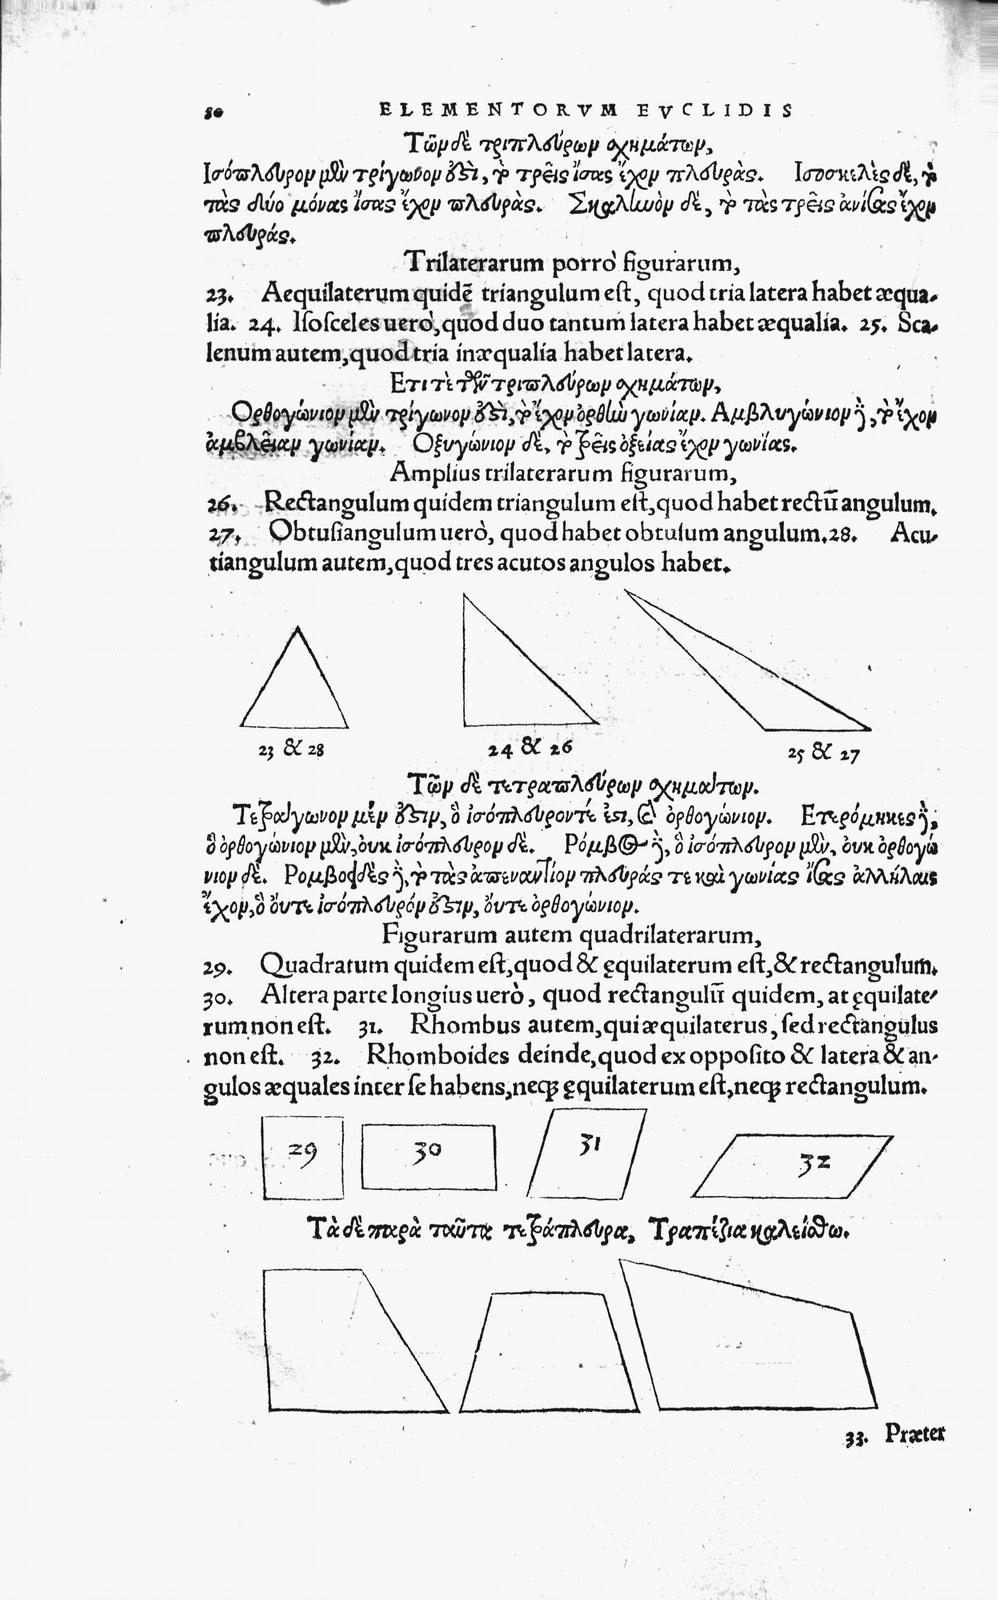 50 ELEMENTORVM EVCLIDIS
Τῶν δὲ τριπλεύρων σχημάτων,
Ισόπλευρον μὲν τρίγωνον ὅστὶ, τὸ τρεῖς ἴσας ἔχον πλευρὰς. Ισοσκελὲς δὲ, τὸ
τὰς δύο μόνας ἴσας ἔχον πλευρὰς. Σκαληνὸν δὲ, τὸ τὰς τρεῖς ἀνίσας ἔχον
πλευράς.
Trilaterarum porrò figurarum,
23. Aequilaterum quidẽ triangulum eſt, quod tria latera habet æqua-
lia. 24. Iſoſceles uerò, quod duo tantum latera habet æqualia. 25. Sca-
lenum autem, quod tria inæqualia habet latera.
Ετι τὲ τῶν τριπλεύρων σχημάτων,
Ορθογώνιον μὲν τρίγωνον ἐστὶ, τὸ ἔχον ὀρθὴν γωνίαν. Αμβλυγώνιον δὲ, τὸ ἔχον
ἀμβλεῖαν γωνίαν. Οξυγώνιον δὲ, τὸ τρεῖς ὀξείας ἔχον γωνίας.
Amplius trilaterarum figurarum,
26. Rectangulum quidem triangulum eſt, quod habet rectũ angulum.
27. Obtuſiangulum uerò, quod habet obtuſum angulum. 28. Acu-
tiangulum autem, quod tres acutos angulos habet.
23 & 28 24 & 26 25 & 27
Τῶν δὲ τετραπλεύρων σχημάτων.
Τετράγωνον μέν ἐστιν, ὃ ἰσόπλευρον τέ ἐστι, καὶ ὀρθογώνιον. Ετερόμηκες δὲ,
ὃ ὀρθογώνιον μὲν, ὀυκ ἰσόπλευρον δὲ. Ρόμβος δὲ, ὃ ἰσόπλευρον μὲν, ὀυκ ὀρθογώ
νιον δὲ. Ρομβοειδὲς δὲ, τὸ τὰς ἀπεναντίον πλευράς τε καὶ γωνίας ἴσας ἀλλήλαις
ἔχον, ὃ ὄυτε ἰσόπλευρόν ἐστιν, ὄυτε ὀρθογώνιον.
Figurarum autem quadrilaterarum,
29. Quadratum quidem eſt, quod & ęquilaterum eſt, & rectangulum.
30. Altera parte longius uerò, quod rectangulũ quidem, at ęquilate-
rum non eſt. 31. Rhombus autem, qui æquilaterus, ſed rectangulus
non eſt. 32. Rhomboides deinde, quod ex oppoſito & latera & an-
gulos æquales inter ſe habens, neqꝫ ęquilaterum eſt, neqꝫ rectangulum.
29 30 31 32
Τὰ δὲ παρὰ ταῦτα τετράπλευρα, Τραπέζια καλείσθω.
33. Præter